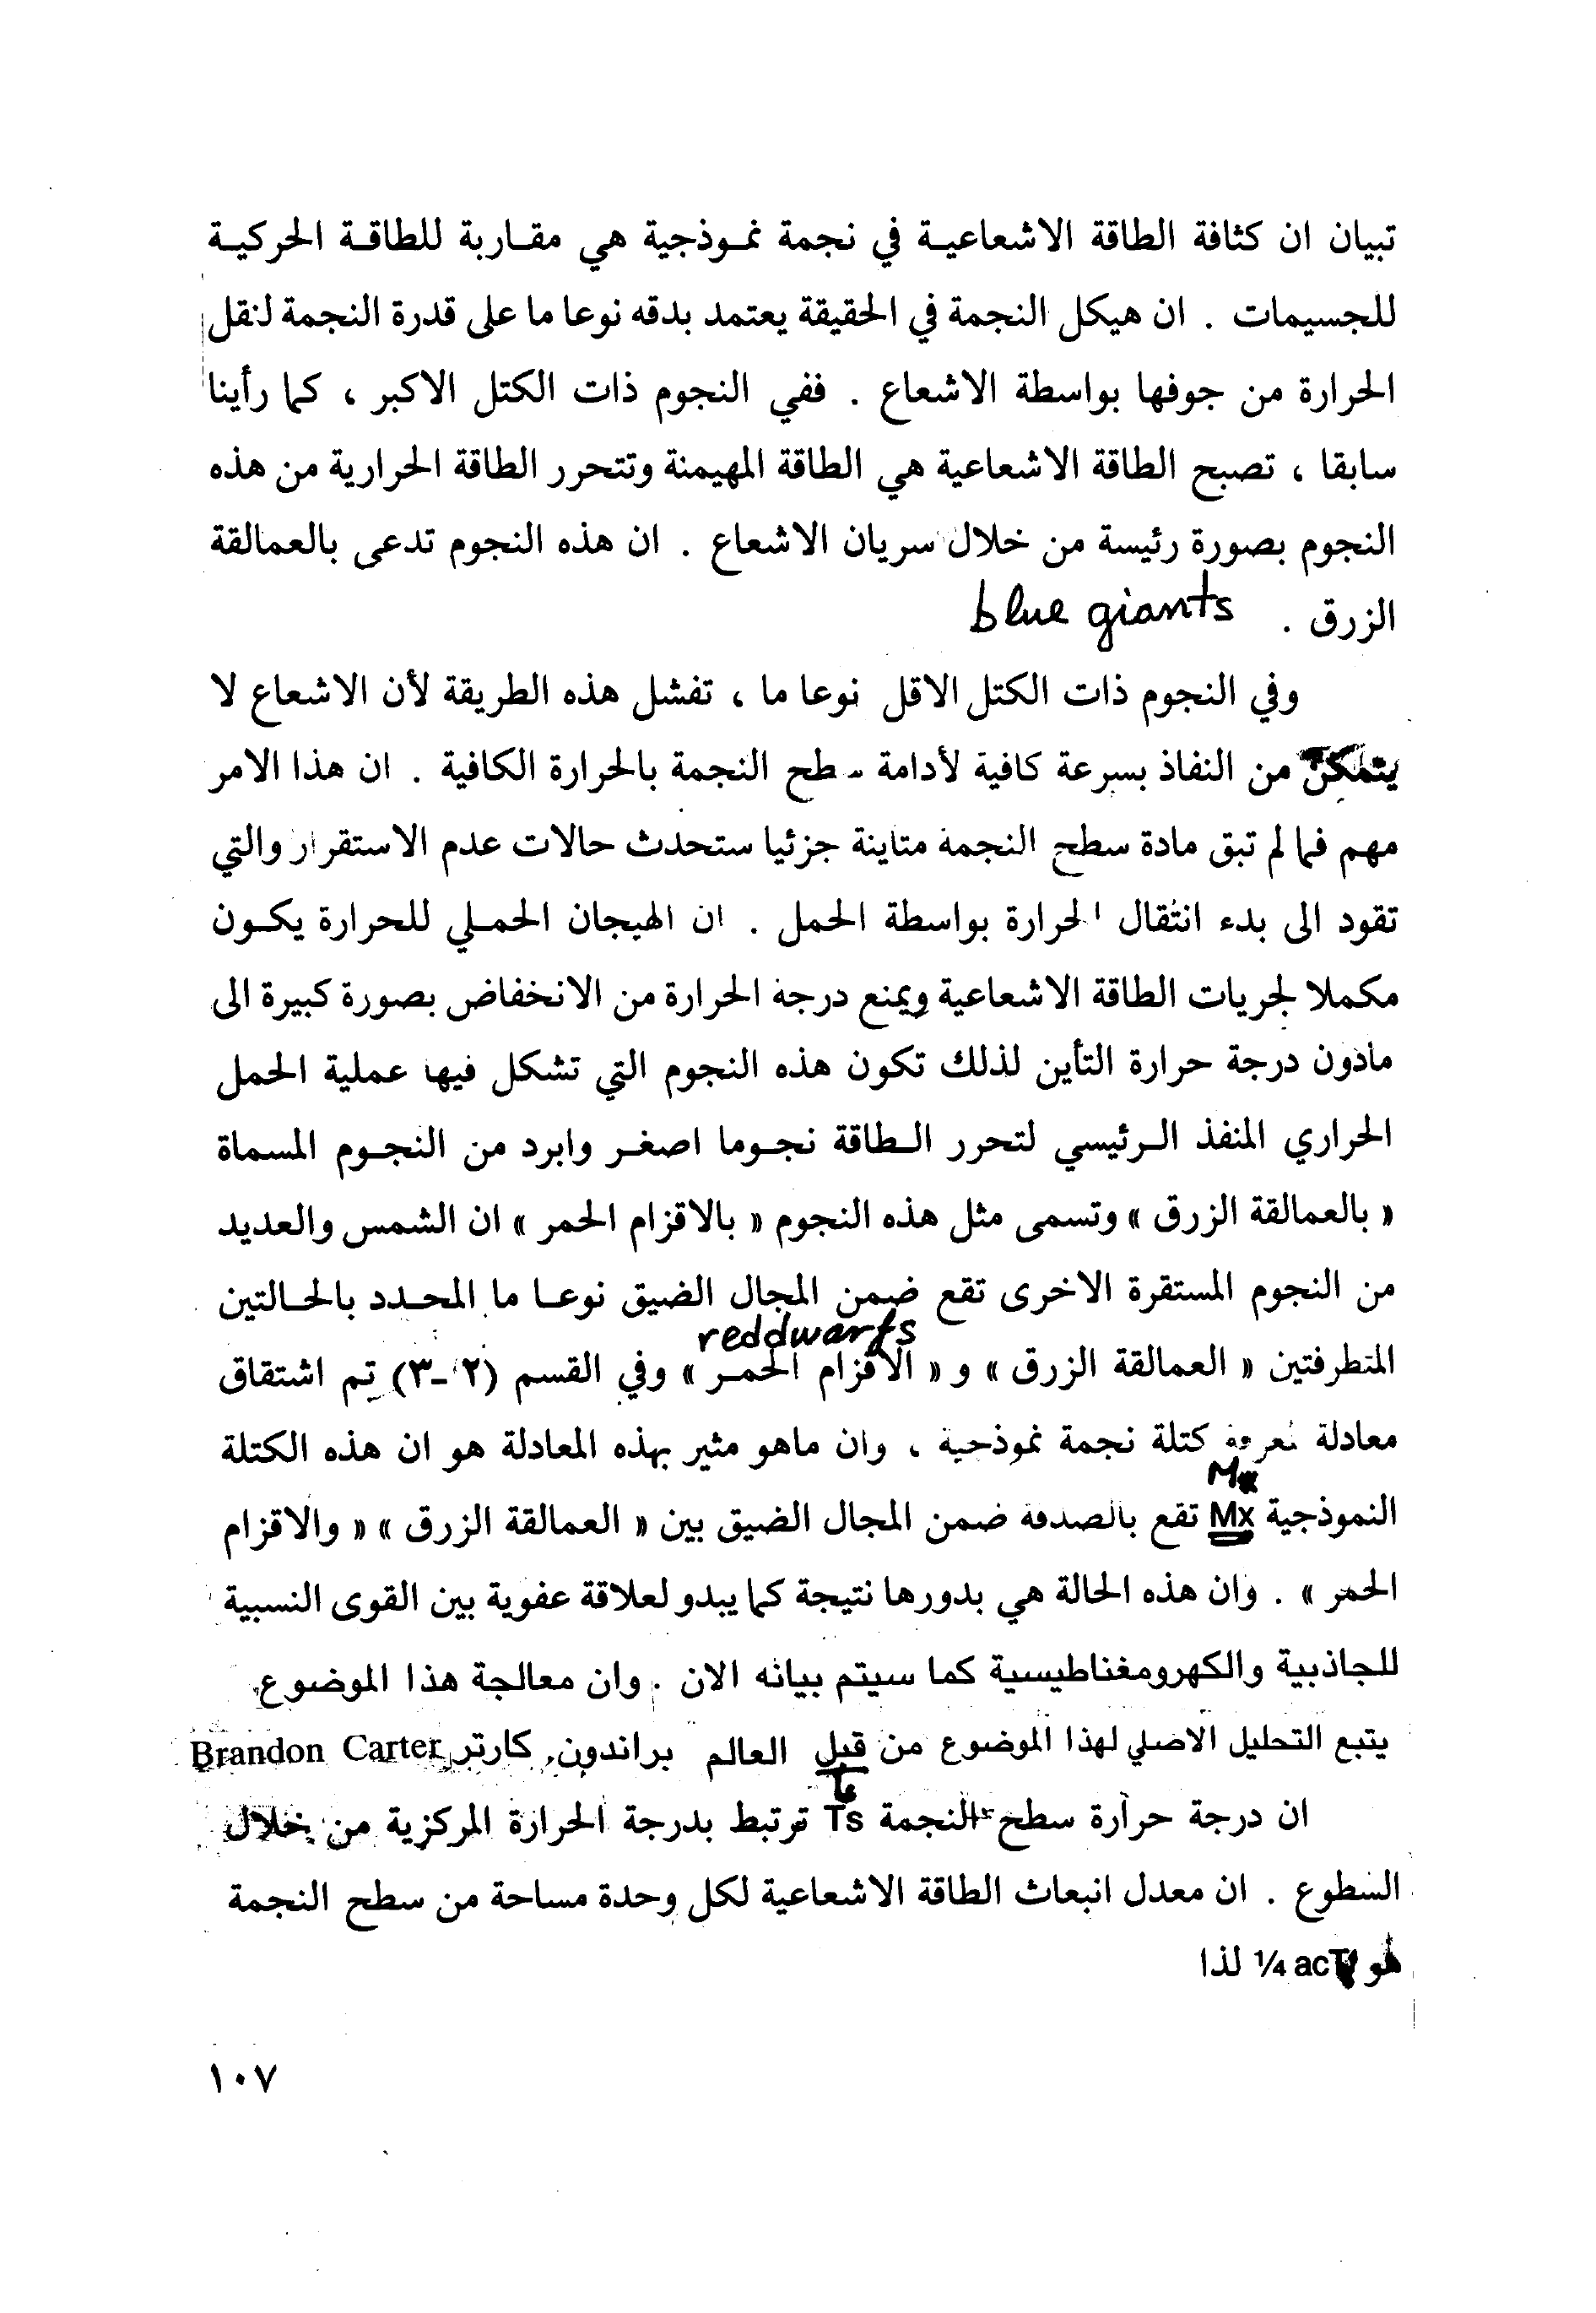 تبيان ان كثافة الطاقة الاشعاعية في نجمة نموذجية هي مقاربة للطاقة الحركية
للجسيمات . ان هيكل النجمة في الحقيقة يعتمد بدقه نوعا ما على قدرة النجمة لنقل
الحرارة من جوفها بواسطة الاشعاع . ففي النجوم ذات الكتل الاكبر ، كما رأينا
سابقا ، تصبح الطاقة الاشعاعية هي الطاقة المهيمنة وتتحرر الطاقة الحرارية من هذه
النجوم بصورة رئيسة من خلال سريان الاشعاع . ان هذه النجوم تدعى بالعمالقة
الزرق . blue giants
وفي النجوم ذات الكتل الاقل نوعا ما ، تفشل هذه الطريقة لأن الاشعاع لا
يتمكن من النفاذ بسرعة كافية لأدامة سطح النجمة بالحرارة الكافية . ان هذا الامر
مهم فما لم تبق مادة سطح النجمة متاينة جزئيا ستحدث حالات عدم الاستقرار والتي
تقود الى بدء انتقال الحرارة بواسطة الحمل . ان الهيجان الحملي للحرارة يكون
مكملا لجريات الطاقة الاشعاعية ويمنع درجة الحرارة من الانخفاض بصورة كبيرة الى
مادون درجة حرارة التأين لذلك تكون هذه النجوم التي تشكل فيها عملية الحمل
الحراري المنفذ الرئيسي لتحرر الطاقة نجوما اصغر وابرد من النجوم المسماة
« بالعمالقة الزرق » وتسمى مثل هذه النجوم « بالاقزام الحمر » ان الشمس والعديد
من النجوم المستقرة الاخرى تقع ضمن المجال الضيق نوعا ما المحدد بالحالتين
red dwarfs
المتطرفتين « العمالقة الزرق » و « الاقزام الحمر » وفي القسم (٢-٣) تم اشتقاق
معادلة كتلة نجمة نموذجية ، وان ماهو مثير بهذه المعادلة هو ان هذه الكتلة
النموذجية Mx تقع بالصدفة ضمن المجال الضيق بين « العمالقة الزرق » « والاقزام
الحمر » . وان هذه الحالة هي بدورها نتيجة كما يبدو لعلاقة عفوية بين القوى النسبية
للجاذبية والكهرومغناطيسية كما سيتم بيانه الان . وان معالجة هذا الموضوع
يتبع التحليل الاصلي لهذا الموضوع من قبل العالم براندون كارتر Brandon Carter
Ts
ان درجة حرارة سطح النجمة Ts ترتبط بدرجة الحرارة المركزية من خلال
السطوع . ان معدل انبعاث الطاقة الاشعاعية لكل وحدة مساحة من سطح النجمة
هو ¼ ac لذا
١٠٧